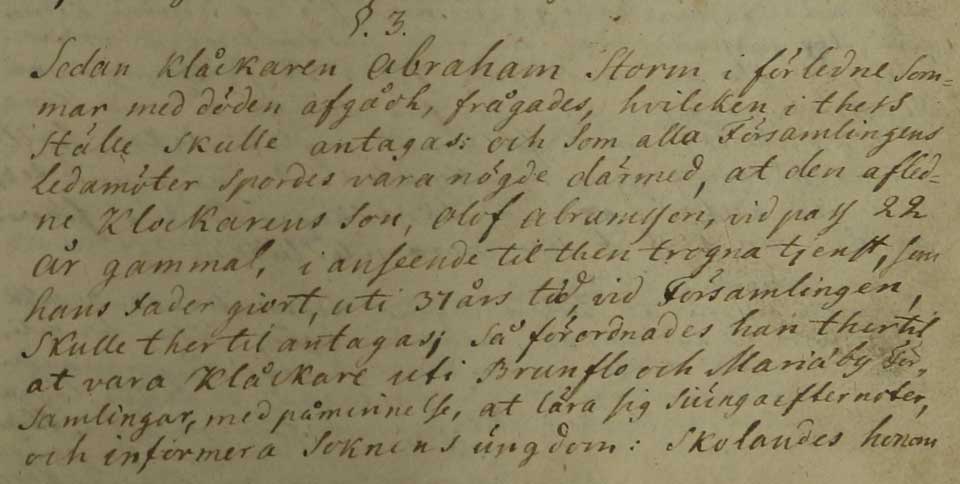 §. 3.
Sedan Klåckaren Abraham Storm i förledne Som=
mar med döden afgådt, frågades, hvilcken i thess
Ställe skulle antagas: och som alla Församlingens
Ledamöter spordes vara nögde därmed, at den afled=
ne Klockarens Son, Olof Abramsson, vid pass 22
år gammal, i anseende til then trogna tjenst, som
hans Fader giort, uti 37 års tid, vid Församlingen,
skulle ther til antagas; Så förordnades han ther til
at vara Klåckare uti Brunflo och Mariæby För=
samlingar, med påminnelse, at lära sig siünga efter noter,
och informera Soknens üngdom: Skolandes honom